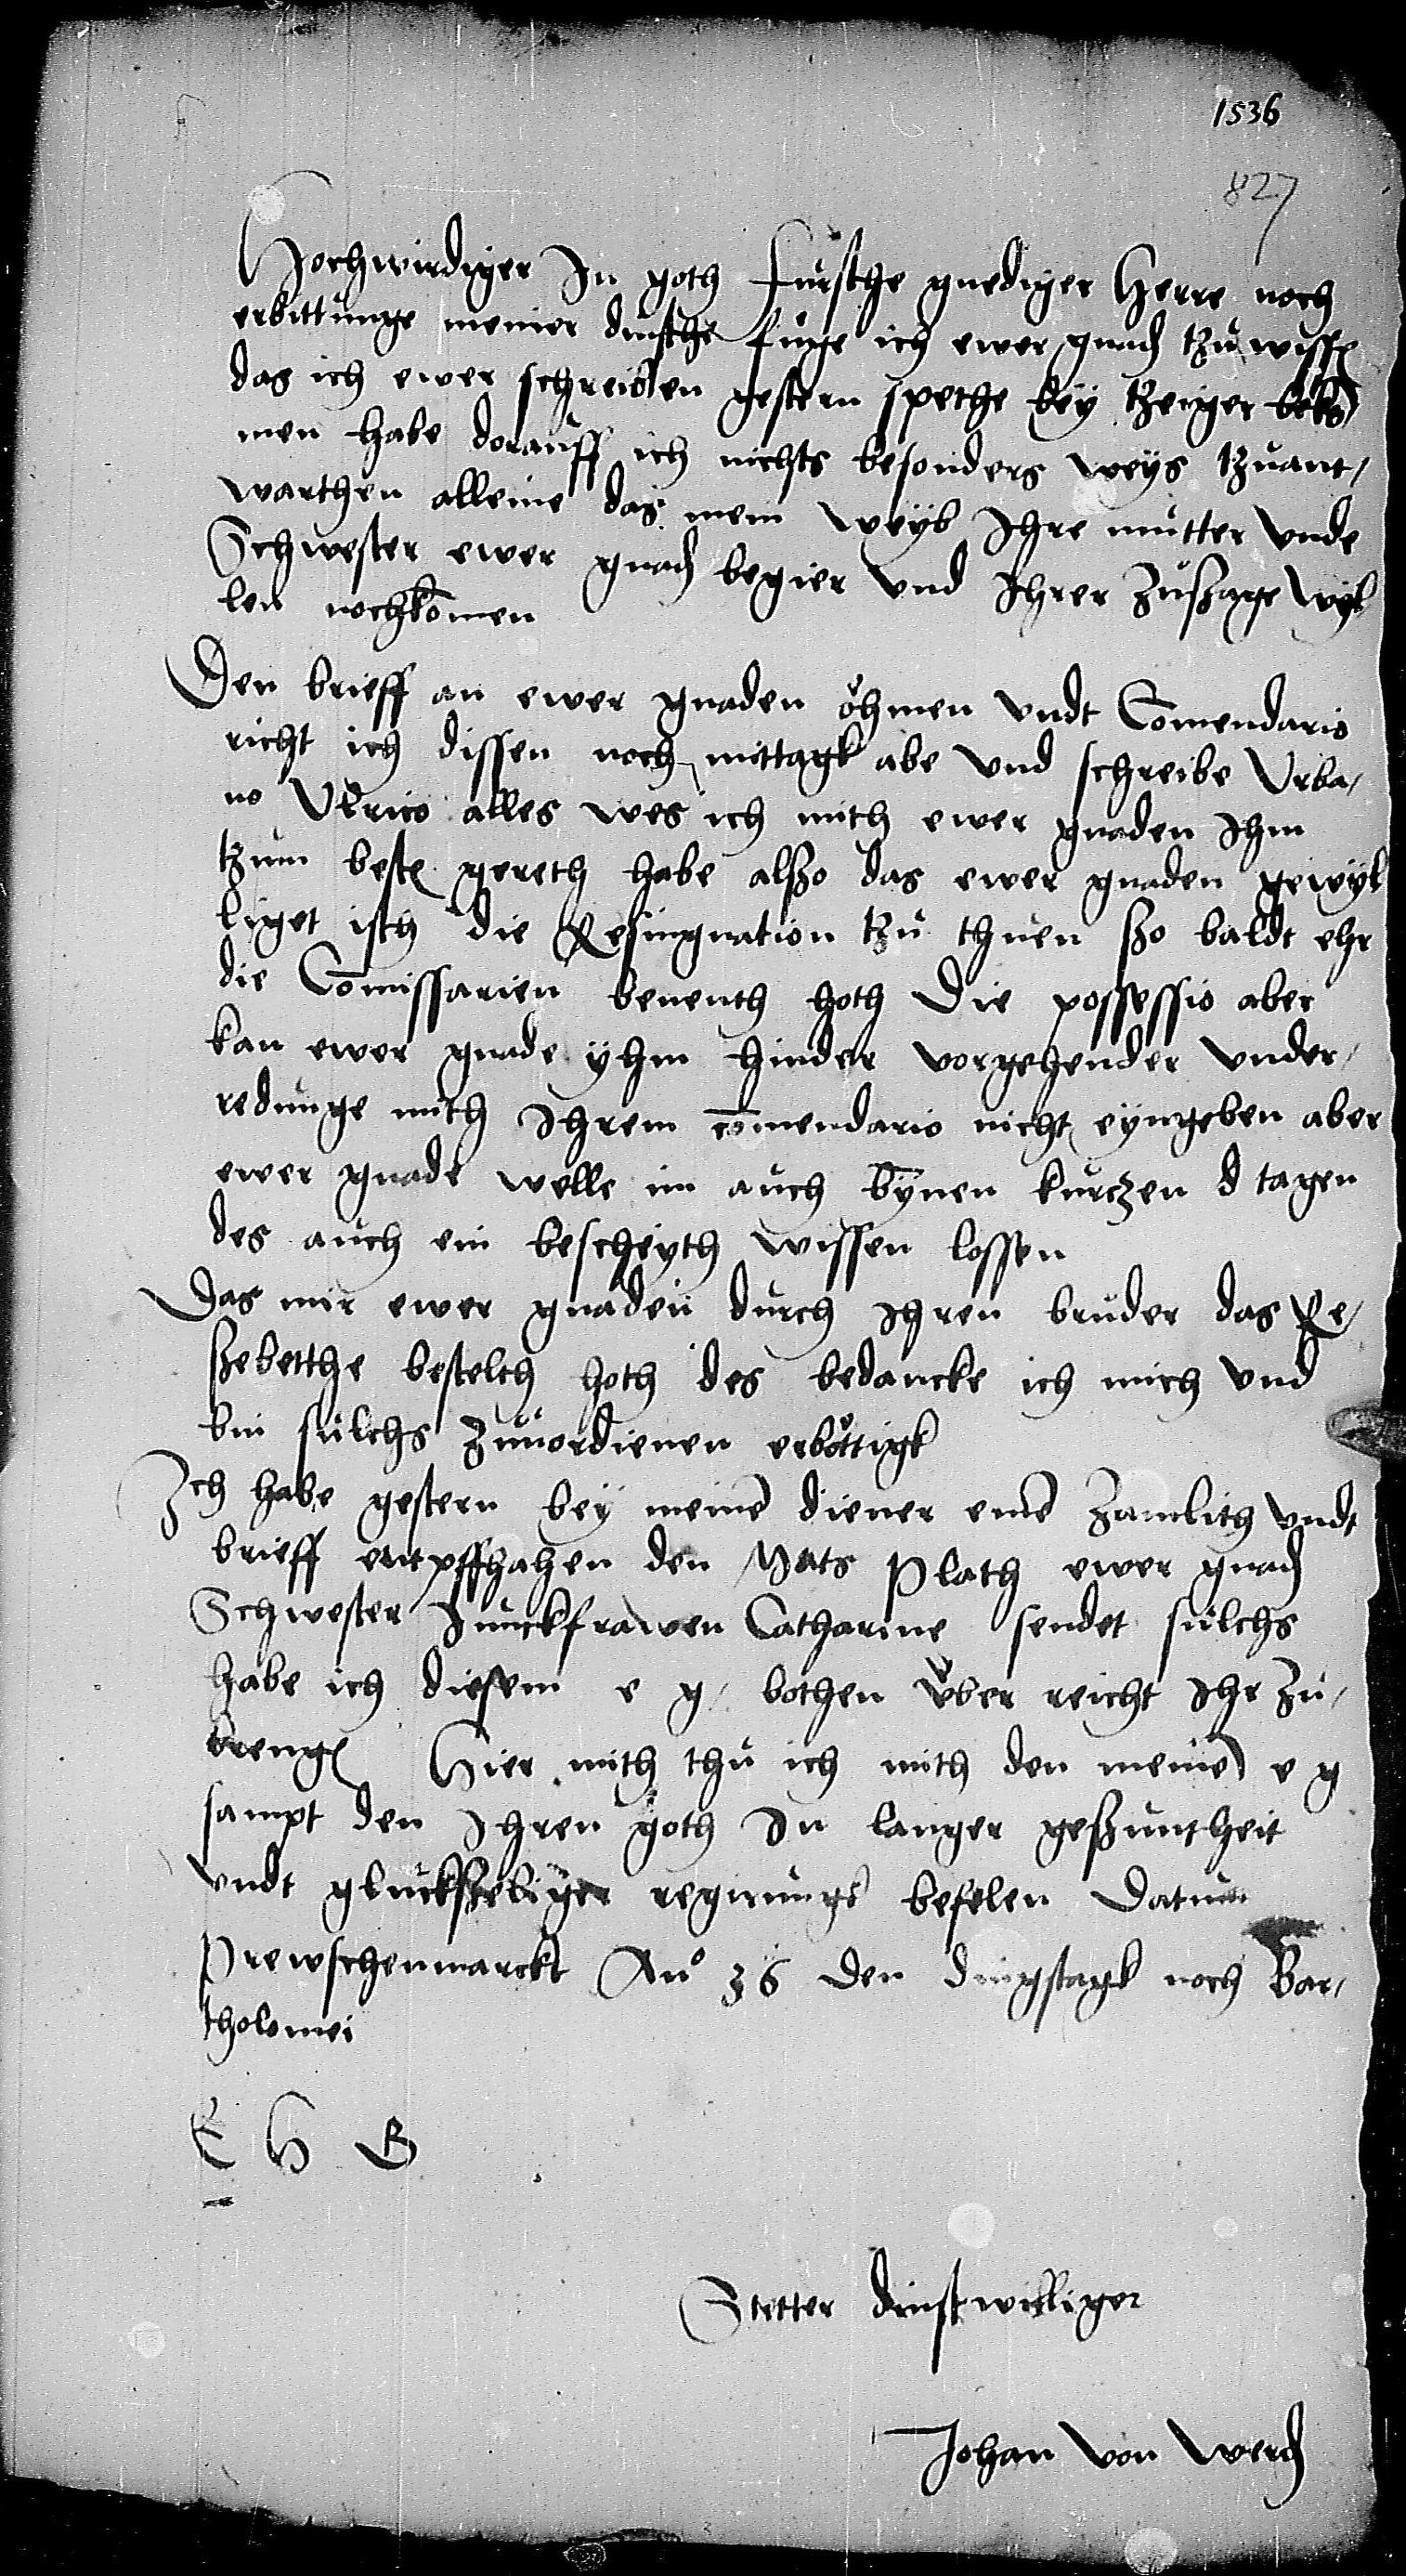 1536
827
Hochwirdiger In goth fursthe gnediger Herre noch
erbittunge meiner dinsthe fuge ich ewer gnad tzu wissen
das ich ewer schreiben gestern spethe bey tzeiger beko
men habe dorauff ich nichts besonders weys tzuant/
warthen alleine das mein weyb Ihre mutter unde
Schwester ewer gnad begier und Ihrer zusage wyl
len nochkomen
Den brieff an ewer gnaden öhmen undt Comendario
richt ich dissen noch mittagk abe und schreibe Urba/
no Ulrico alles wes ich mith ewer gnaden Ihm
tzum besten gereth habe alßo das ewer gnaden gewyl
liget isth die Resingnation tzu thuen ßo baldt ehr
die Comissarien benenth hoth Die possessio aber
kan ewer gnade yhm hinder vorgehender under/
redunge mith Ihrem comendario nicht eyngeben aber
ewer gnade welle im auch bynen kurczen d tagen
des auch ein bescheyth wissen lossen
Das mir ewer gnaden durch Ihren bruder das Re/
ßebetthe bestelth hoth des bedancke ich mich und
bin sulchs zuuordienen erböttigk
Ich habe gestern bey meine diener eine undt
brieff entpffhahen den Hats Plath ewer gnad
Schwester Junckfrawen Catharine sendet sulchs
habe ich diesem e g bothen über reicht Ihr zu/
brengen Hier mith thu ich mith den meinen e g
sampt den Ihren goth In langer geßuntheit
undt gluckßeliger regirunge befelen Datum
Prewschenmarckt Ano 36 Den dingstagk noch Bar/
tholomei
E H G
Stetter dinstwilliger
Johan von Werd